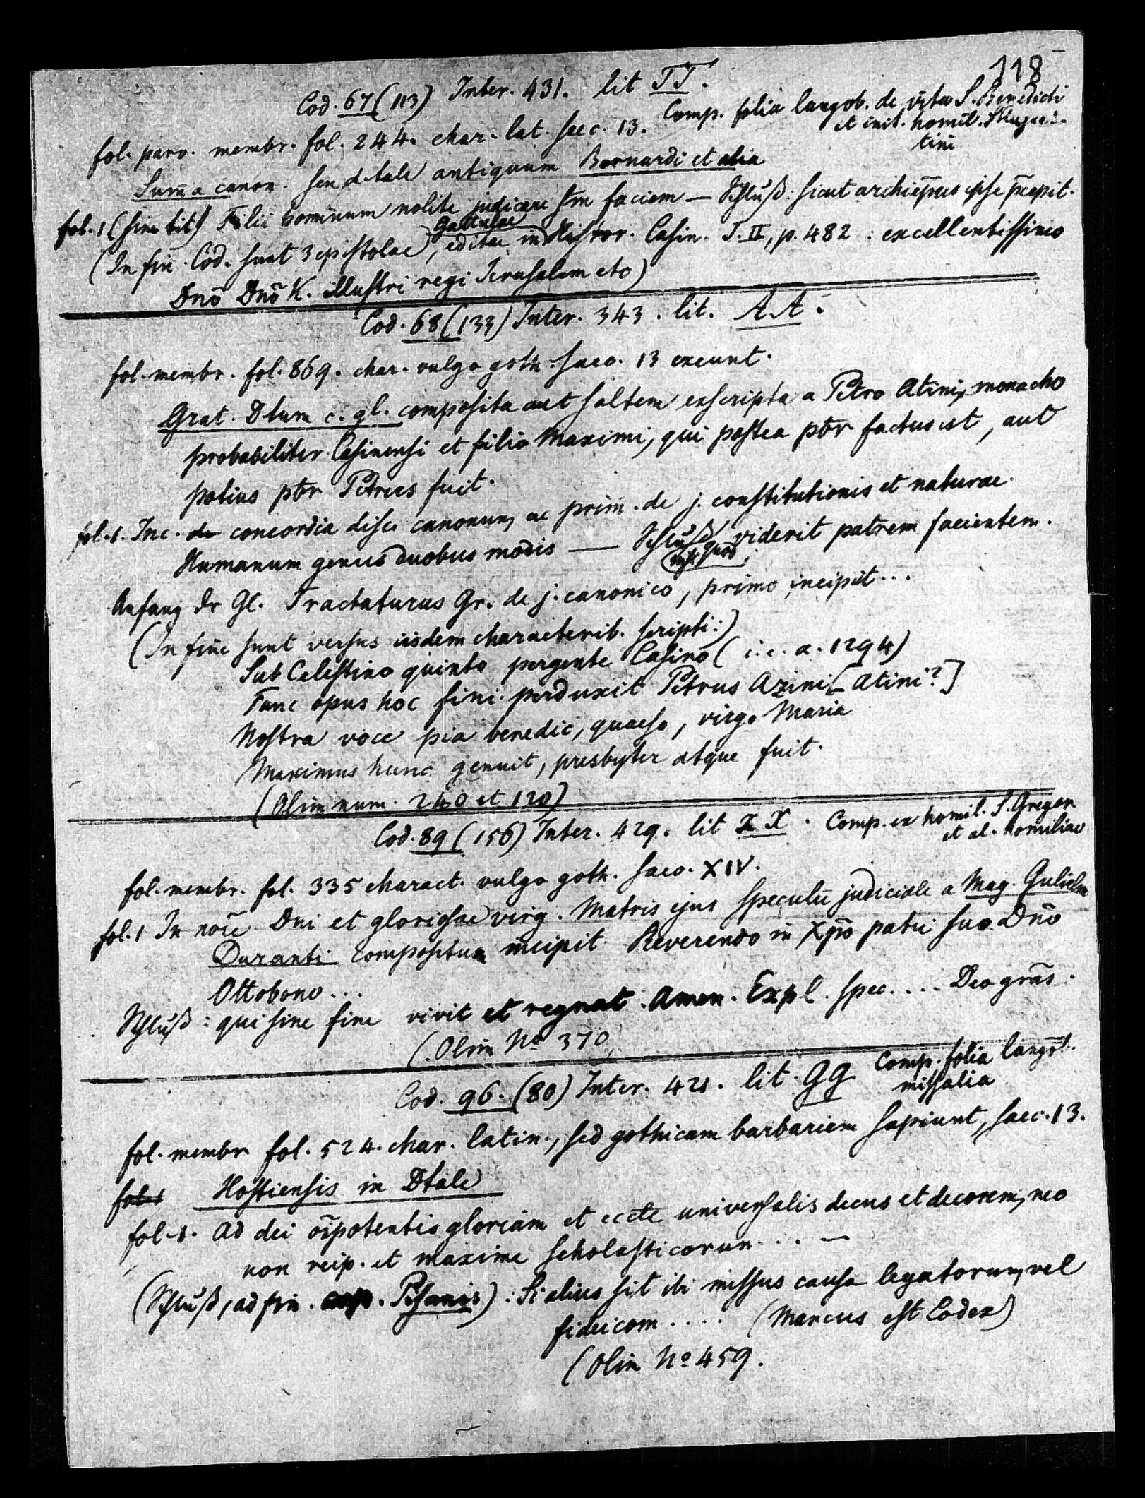 118
Cod. 67 (113) Inter. 431. lit TT.
Comp. folia langob. de vita S. Benedicti
et init. homil. S. Augus-
tini
fol. parv. membr. fol. 244. char. lat. saec. 13.
Suma canon. seu dtale antiquum Bernardi et alia
fol. 1 (sine tit) Filii hominum nolite judicare scdm faciem — Schluß: sicut archiepus ipse pcepit.
(In fin. Cod. sunt 3 epistolae, editae in Histor. Casin. T. II, p. 482: excellentissimo
Gattulae
Dno Dno K. illustri regi Jerusalem etc)
Cod. 68 (133) Inter. 343. lit. AA.
fol. membr. fol. 869. char. vulgo goth. saec. 13 exeunt.
Grat. Dtum c. gl. composita aut saltem exscripta a Petro Atini, monacho
probabiliter Casinensi et filio Maximi, qui postea pbr factus est, aut
potius pbr Petrus fuit.
fol. 1. Inc. de concordia disc. canonum, ac prim. de j. constitutionis et naturae.
Humanum genus duobus modis — Schluß viderit patrem facientem.
Anfang dr Gl. Tractaturus Gr. de j. canonico, primo incipit...
(In fine sunt versus iisdem characterib. scripti:)
Sub Celestino quinto pergente Casino (i. e. a. 1294)
Tunc opus hoc fini perduxit Petrus Azini [Atini?]
Nostra voce pia benedic, quaeso, virgo Maria
Maximus hunc genuit, presbyter atque fuit.
(Olim num. 240 et 120)
Cod. 89 (156) Inter. 429. lit XX. Comp. ex homil. S. Gregor
et al. homiliae
fol. membr. fol. 335 charact. vulgo goth. saec. XIV.
fol. 1 In noie Dni et gloriosae virg. Matris ejus speculu judiciale a Mag. Gulielm
Duranti compositum incipit Reverendo in Xpo patri suo Dno
Ottobono...
Schluß: qui sine fine vivit et regnat. Amen. Expl. spec.... Deo gras.
(Olim No 370
Cod. 96. (80) Inter. 421. lit. GG Comp. folia langob.
missalia
fol. membr fol. 524. char. latin., sed gothicam barbariem sapiunt, saec. 13.
fol. 1 Hostiensis in Dtale
fol. 1. Ad dei oipotentis gloriam et eccte universalis decus et decorem, nec
non reip. et maxime scholasticorum.... —
(Schluß, ad fin. Pisanis): Si alius sit ibi missus causa legatorum, vel
fideicom.... (Mancus est Codex)
(Olim No 459.